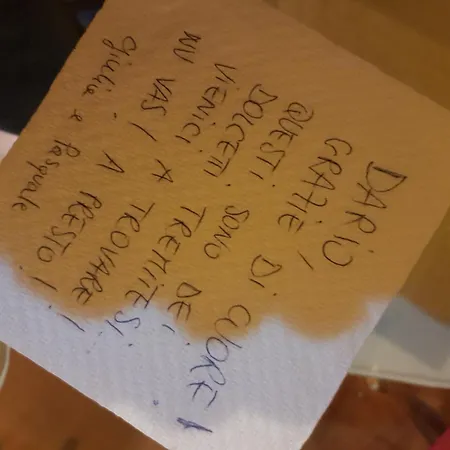 DARIO,
GRAZIE DI CUORE!
QUESTI SONO DEI
DOLCETTI TREMITESI.
VIENICI A TROVARE!
NU VAS! A PRESTO!
Giulia e Pasquale